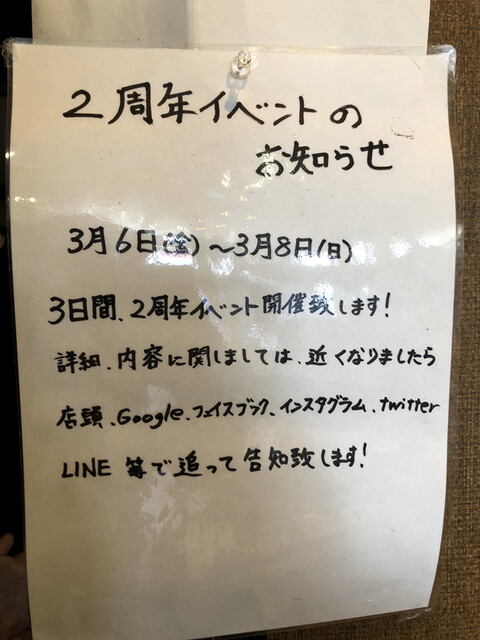 2周年イベントの
お知らせ
3月6日(金)～3月8日(日)
3日間、2周年イベント開催致します!
詳細、内容に関しましては、近くなりましたら
店頭、Google、フェイスブック、インスタグラム、twitter
LINE 等で追って告知致します!